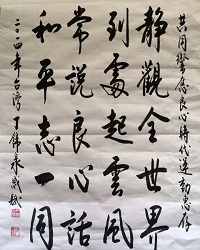 共同良心時代運動惠存
靜觀全世界
到處起雲風
常說良心話
和平志一同
二〇一四年台灣丁錦